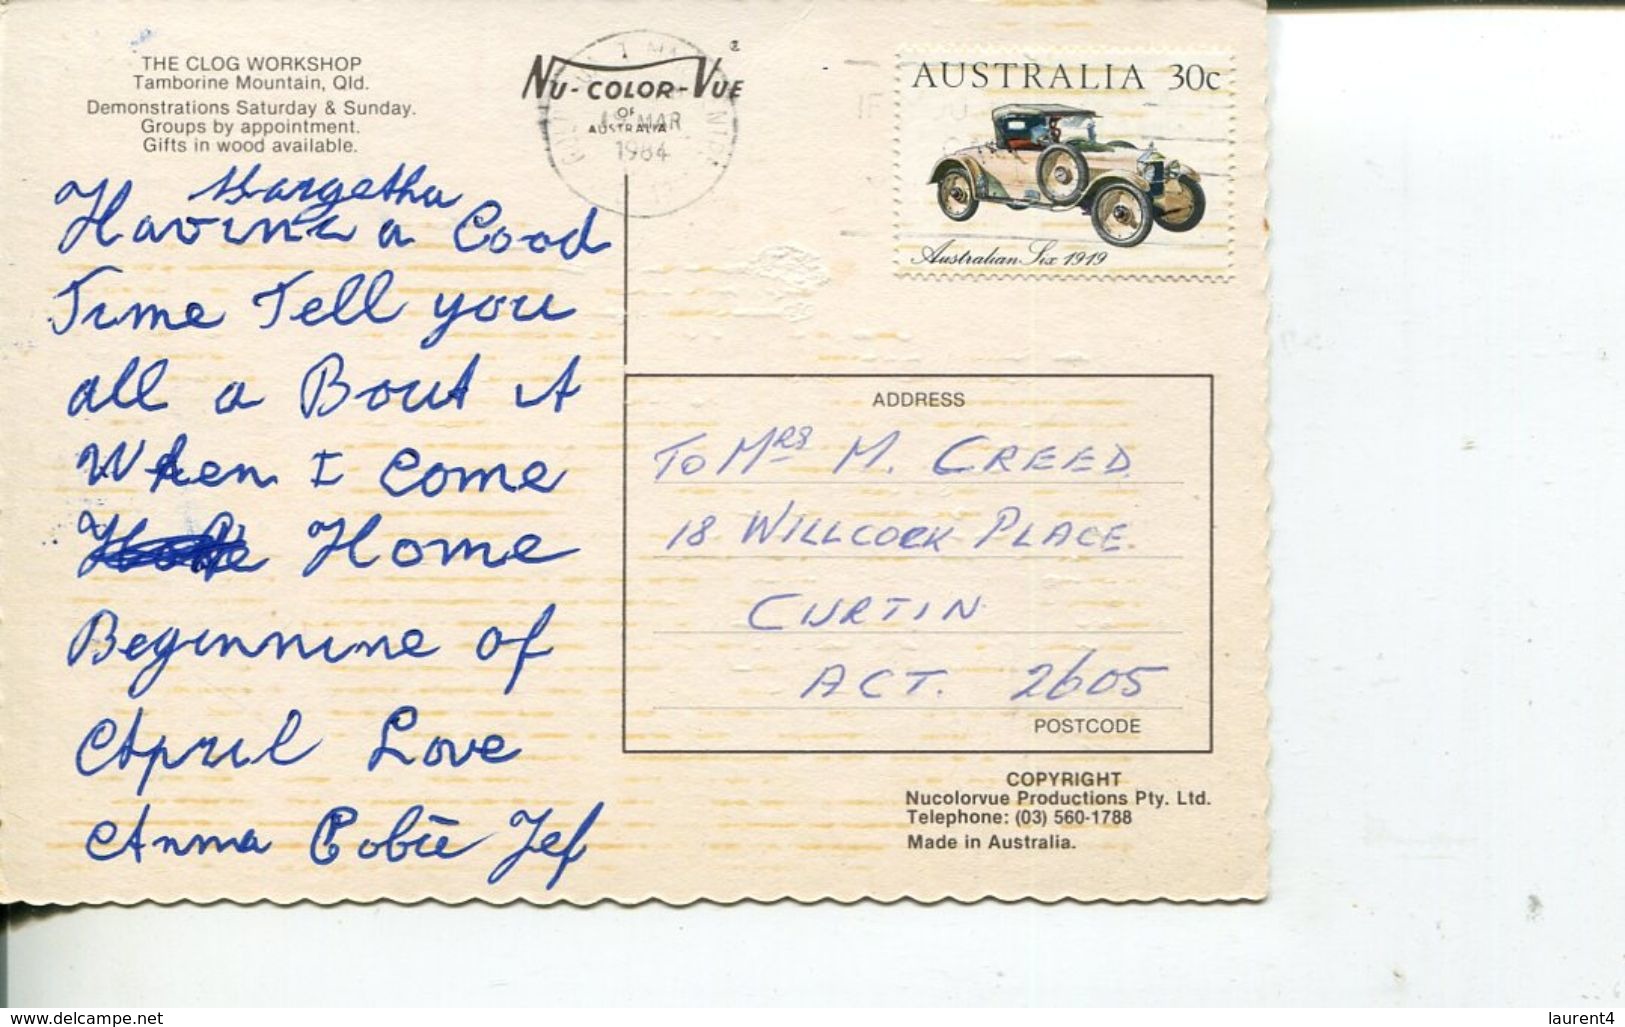 THE CLOG WORKSHOP
Tamborine Mountain, Qld.
Demonstrations Saturday & Sunday.
Groups by appointment.
Gifts in wood available.
NU-COLOR-VUE
OF
AUSTRALIA
MAR
1984
AUSTRALIA 30c
Australian Six 1919
Margetha
Having a Good
Time Tell you
all a Bout it
When I Come
Home
Beginnine of
April Love
Anma Pobie Jef
ADDRESS
TO MRS M. CREED
18 WILLCOCK PLACE
CURTIN
ACT. 2605
POSTCODE
COPYRIGHT
Nucolorvue Productions Pty. Ltd.
Telephone: (03) 560-1788
Made in Australia.
www.delcampe.net
laurent4